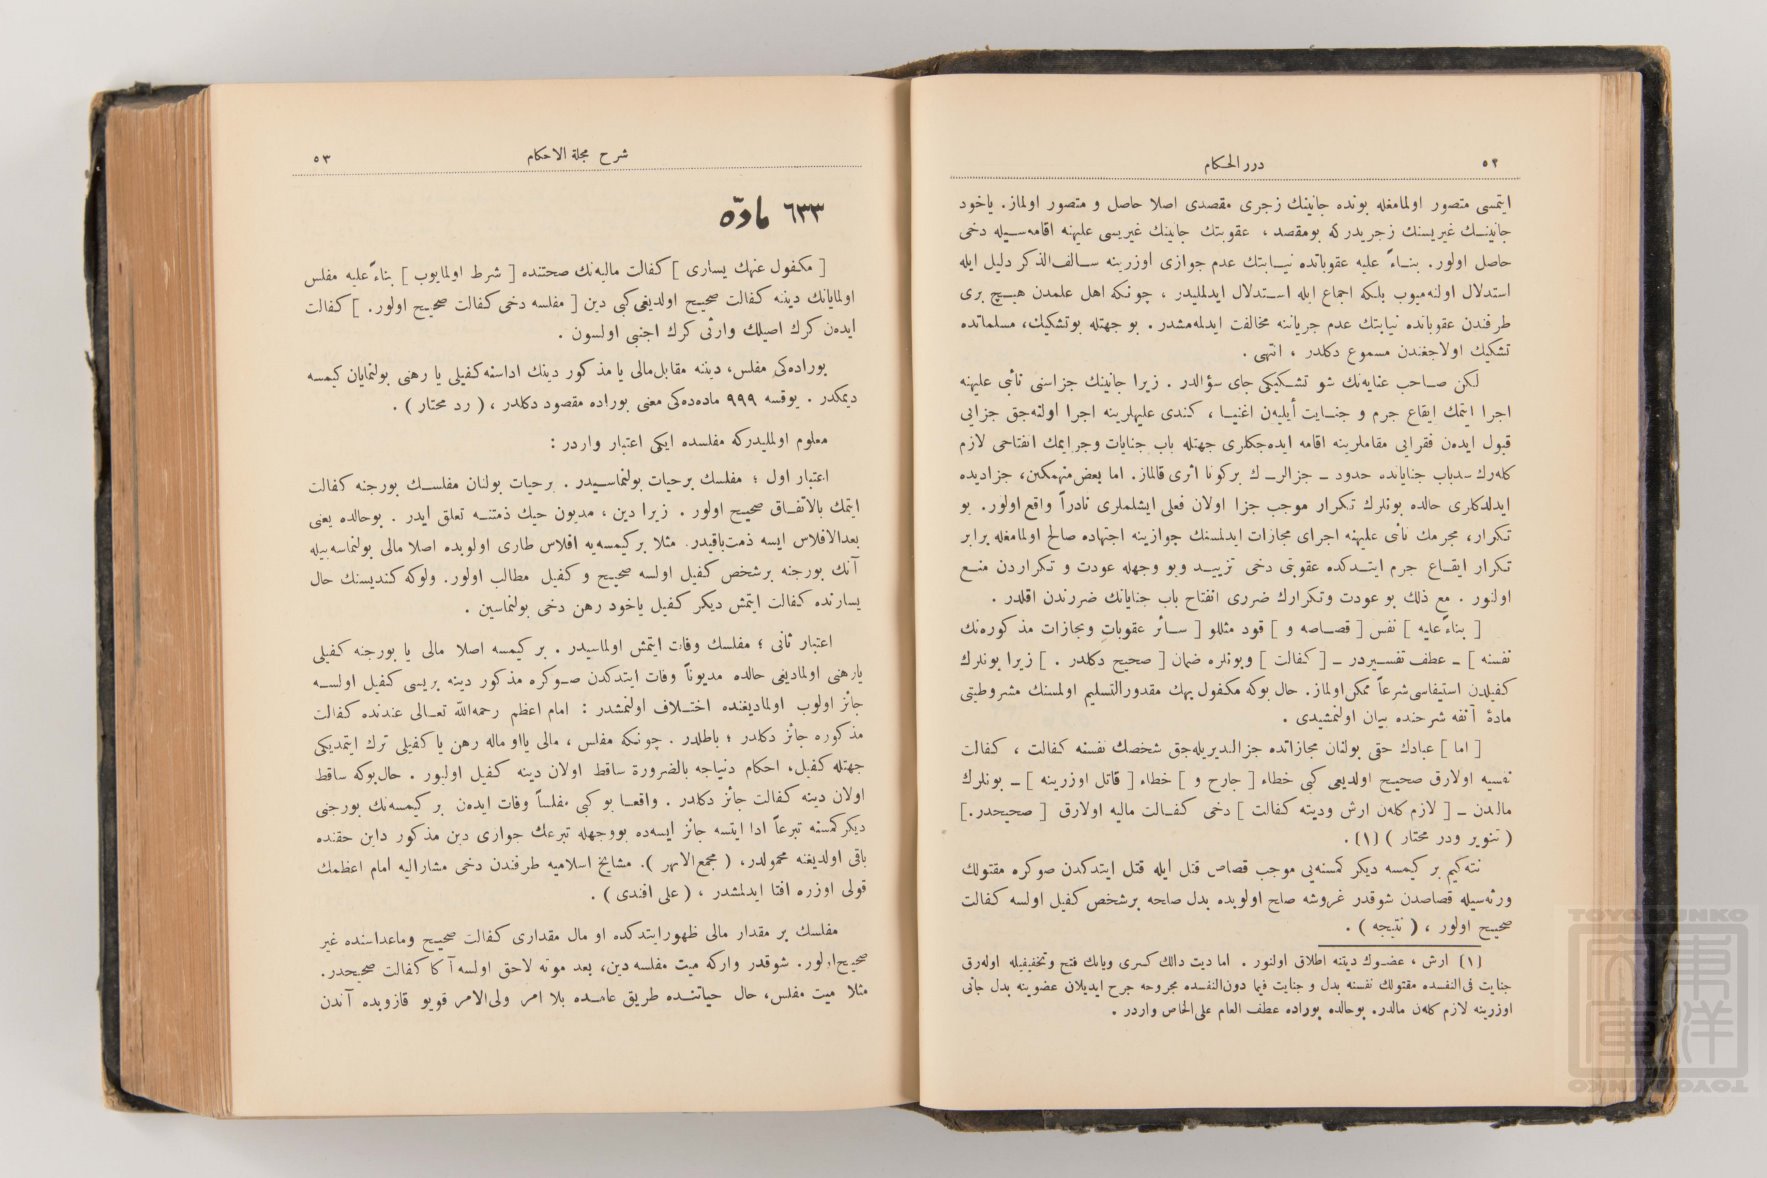 ٥٢
درر الحكام
ايتمسى متصور اولمامغله بونده جانينك زجرى مقصدى اصلا حاصل و متصور اولماز. ياخود
جانينك غيريسنك زجريدركه بومقصد ، عقوبتك جانينك غيريسى عليهنه اقامه‌سيله دخى
حاصل اولور. بناءً عليه عقوباتده نيابتك عدم جوازى اوزرينه سالف‌الذكر دليل ايله
استدلال اولنه‌ميوب بلكه اجماع ايله استدلال ايدلمليدر ، چونكه اهل علمدن هيچ برى
طرفندن عقوباتده نيابتك عدم جرياننه مخالفت ايدلمه‌مشدر . بو جهتله بوتشكيك، مسلماتده
تشكيك اولاجغندن مسموع دكلدر ، انتهى .
لكن صاحب عنايه‌نك شو تشكيكى جاى سؤالدر . زيرا جانينك جزاسنى نائبى عليهنه
اجرا ايتمك ايقاع جرم و جنايت أيليه‌ن اغنيا ، كندى عليهلرينه اجرا اولنه‌جق جزايى
قبول ايده‌ن فقرايى مقاملرينه اقامه ايده‌جكلرى جهتله باب جنايات وجرايمك انفتاحى لازم
كله‌رك سدباب جناياتده حدود ـ جزالرـ ك بركونا اثرى قالماز. اما بعض منهمكين، جزاديده
ايدلدكلرى حالده بونلرك تكرار موجب جزا اولان فعلى ايشلملرى نادراً واقع اولور. بو
تكرار، مجرمك نائبى عليهنه اجراى مجازات ايدلمسنك جوازينه اجتهاده صالح اولمامغله برابر
تكرار ايقاع جرم ايتدكده عقوبتى دخى تزييد وبو وجهله عودت و تكراردن منع
اولنور . مع ذلك بو عودت وتكرارك ضررى انفتاح باب جناياتك ضررندن اقلدر .
[ بناءً عليه ] نفس [ قصاصه و ] قود مثللو [ سائر عقوبات ومجازات مذكوره‌نك
نفسنه ] ـ عطف تفسيردر ـ [ كفالت ] وبونلره ضمان [ صحيح دكلدر . ] زيرا بونلرك
كفيلدن استيفاسى شرعاً ممكن اولماز. حال بوكه مكفول بهك مقدورالتسليم اولمسنك مشروطيتى
مادهٔ آنفه شرحنده بيان اولنمشيدى .
[ اما ] عبادك حقى بولنان مجازاتده جزالنديريله‌جق شخصك نفسنه كفالت ، كفالت
نفسيه اولارق صحيح اولديغى كبى خطاء [ جارح و ] خطاء [ قاتل اوزرينه ] ـ بونلرك
مالندن ـ [ لازم كله‌ن ارش وديته كفالت ] دخى كفالت ماليه اولارق [ صحيحدر. ]
( تنوير ودر مختار ) (١) .
نته‌كيم بر كيمسه ديكر كمسنه‌يى موجب قصاص قتل ايله قتل ايتدكدن صوكره مقتولك
ورثه‌سيله قصاصدن شوقدر غروشه صلح اولوبده بدل صلحه برشخص كفيل اولسه كفالت
صحيح اولور ، ( نتيجه ) .
(١) ارش ، عضوك ديتنه اطلاق اولنور . اما ديت دالك كسرى ويانك فتح وتخفيفيله اوله‌رق
جنايت فى‌النفسده مقتولك نفسنه بدل و جنايت فيما دون‌النفسده مجروحه جرح ايديلان عضوينه بدل جانى
اوزرينه لازم كله‌ن مالدر. بوحالده بوراده عطف العام على‌الخاص واردر .
شرح مجلة الاحكام
٥٣
٦٣٣ مادّه
[ مكفول عنهك يسارى ] كفالت ماليه‌نك صحتنده [ شرط اولمايوب ] بناءً عليه مفلس
اولمايانك ديننه كفالت صحيح اولديغى كبى دين [ مفلسه دخى كفالت صحيح اولور. ] كفالت
ايده‌ن كرك اصيلك وارثى كرك اجنبى اولسون .
بوراده‌كى مفلس، ديننه مقابل مالى يا مذكور دينك اداسنه كفيلى يا رهنى بولنمايان كيمسه
ديمكدر . يوقسه ٩٩٩ ماده‌ده‌كى معنى بوراده مقصود دكلدر ، ( رد محتار ) .
معلوم اولمليدركه مفلسده ايكى اعتبار واردر :
اعتبار اول ؛ مفلسك برحيات بولنماسيدر . برحيات بولنان مفلسك بورجنه كفالت
ايتمك بالاتفاق صحيح اولور . زيرا دين ، مديون حيك ذمتنه تعلق ايدر . بوحالده يعنى
بعدالافلاس ايسه ذمت باقيدر. مثلا بر كيمسه‌يه افلاس طارى اولوبده اصلا مالى بولنماسه بيله
آنك بورجنه برشخص كفيل اولسه صحيح و كفيل مطالب اولور. ولوكه كنديسنك حال
يسارنده كفالت ايتمش ديكر كفيل ياخود رهن دخى بولنماسين .
اعتبار ثانى ؛ مفلسك وفات ايتمش اولماسيدر . بر كيمسه اصلا مالى يا بورجنه كفيلى
يا رهنى اولماديغى حالده مديوناً وفات ايتدكدن صوكره مذكور دينه بريسى كفيل اولسه
جائز اولوب اولماديغنده اختلاف اولنمشدر : امام اعظم رحمه‌الله تعالى عندنده كفالت
مذكوره جائز دكلدر ؛ باطلدر . چونكه مفلس ، مالى يااو ماله رهن يا كفيلى ترك ايتمديكى
جهتله كفيل، احكام دنياجه بالضرورة ساقط اولان دينه كفيل اوليور . حال‌بوكه ساقط
اولان دينه كفالت جائز دكلدر . واقعا بو كبى مفلساً وفات ايده‌ن بر كيمسه‌نك بورجنى
ديكر كمسنه تبرعاً ادا ايتسه جائز ايسه‌ده بووجهله تبرعك جوازى دين مذكور داين حقنده
باقى اولديغنه محمولدر، ( مجمع‌الانهر ). مشايخ اسلاميه طرفندن دخى مشاراليه امام اعظمك
قولى اوزره افتا ايدلمشدر ، ( على افندى ) .
مفلسك بر مقدار مالى ظهورايتدكده او مال مقدارى كفالت صحيح وماعداسنده غير
صحيح اولور. شوقدر واركه ميت مفلسه دين، بعد موته لاحق اولسه آ كا كفالت صحيحدر.
مثلا ميت مفلس، حال حياتنده طريق عامده بلا امر ولى‌الامر قويو قازوبده آندن
TOYO BUNKO
東洋文庫
TOYO BUNKO